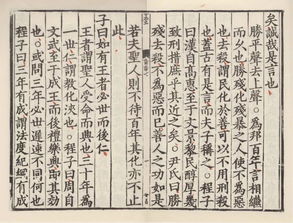 矣誠哉是言也
勝平聲去上聲○為邦百年言相繼
而久也勝殘化殘暴之人使不為惡
也去殺謂民化於善可以不用刑殺
也蓋古有是言而夫子稱之○程子
曰漢自高惠至于文景黎民醇厚幾
致刑措庶乎其近之矣○尹氏曰勝
殘去殺不為惡而已善人之功如是
若夫聖人則不待百年其化亦不止
此
子曰如有王者必世而後仁
王者謂聖人受命而興也三十年為
一世仁謂教化浹也○程子曰周自
文武至于成王而後禮樂興即其效
也○或問三年必世遲速不同何也
程子曰三年有成謂法度紀綱有成